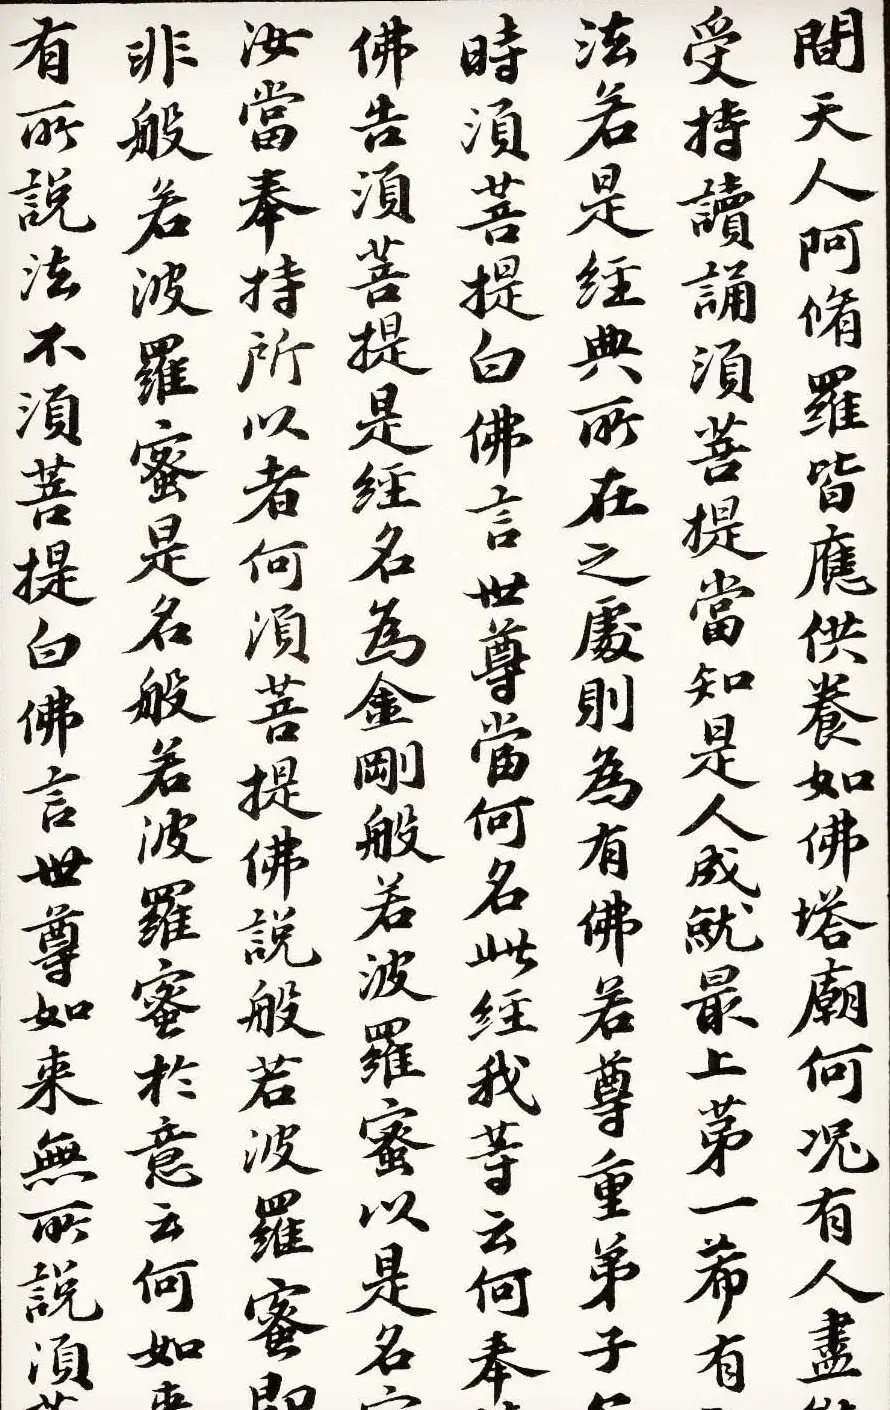 間天人阿脩羅皆應供養如佛塔廟何況有人盡
受持讀誦須菩提當知是人成就最上苐一希有
法若是經典所在之處則為有佛若尊重弟子
時須菩提白佛言世尊當何名此經我等云何奉
佛告須菩提是經名為金剛般若波羅蜜以是名
汝當奉持所以者何須菩提佛說般若波羅蜜即
非般若波羅蜜是名般若波羅蜜於意云何如来
有所說法不須菩提白佛言世尊如来無所說須